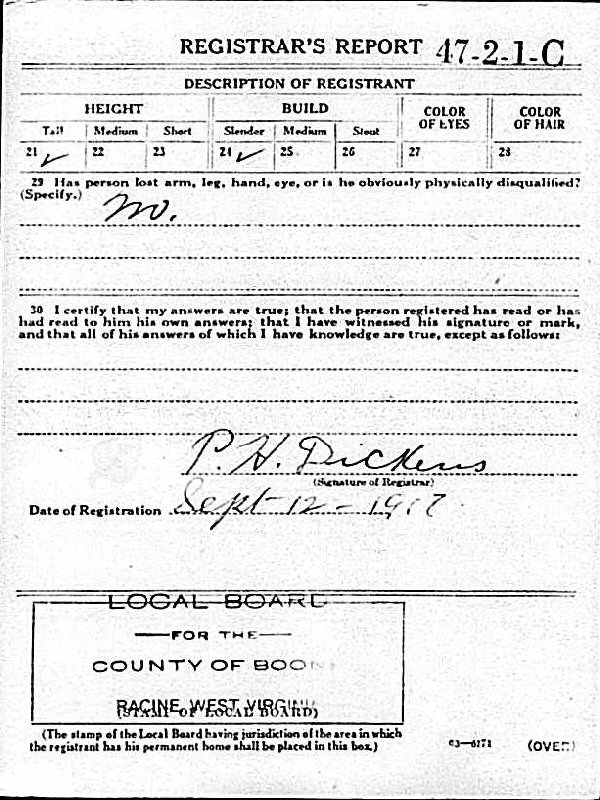 REGISTRAR'S REPORT 47-2-1-C
DESCRIPTION OF REGISTRANT
HEIGHT BUILD COLOR OF EYES COLOR OF HAIR
Tall Medium Short Slender Medium Stout
21 ✓ 22 23 24 ✓ 25 26 27 28
29 Has person lost arm, leg, hand, eye, or is he obviously physically disqualified?
(Specify.) no.
30 I certify that my answers are true; that the person registered has read or has
had read to him his own answers; that I have witnessed his signature or mark,
and that all of his answers of which I have knowledge are true, except as follows:
P. H. Dickens
(Signature of Registrar)
Date of Registration Sept-12-1917
LOCAL BOARD
FOR THE
COUNTY OF BOON
RACINE, WEST VIRGINIA
(STAMP OF LOCAL BOARD)
(The stamp of the Local Board having jurisdiction of the area in which
the registrant has his permanent home shall be placed in this box.)
03—6171 (OVER)